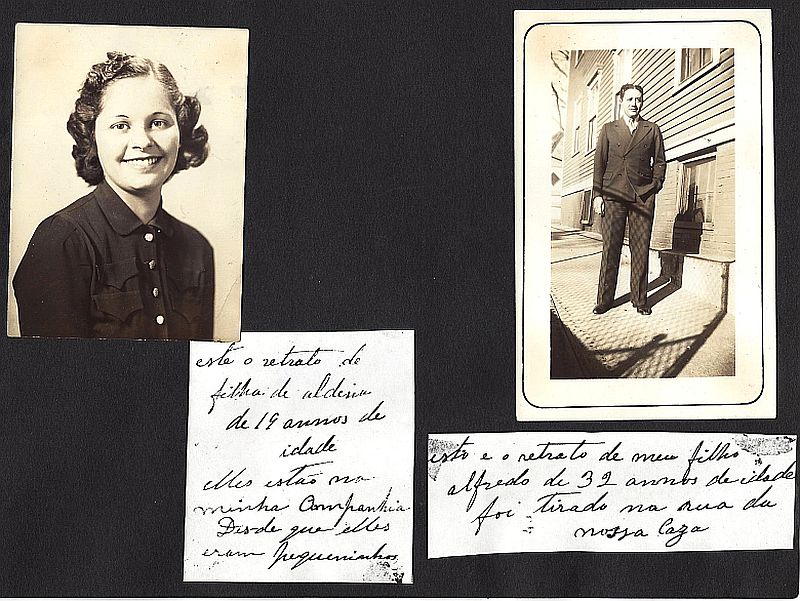 este o retrato de
filha de aldina
de 19 annos de
idade
elles estão na
minha Companhia
Desde que elles
eram pequeninhos
isto e o retrato de meu filho
alfredo de 32 annos de idade
foi tirado na rua da
nossa Caza